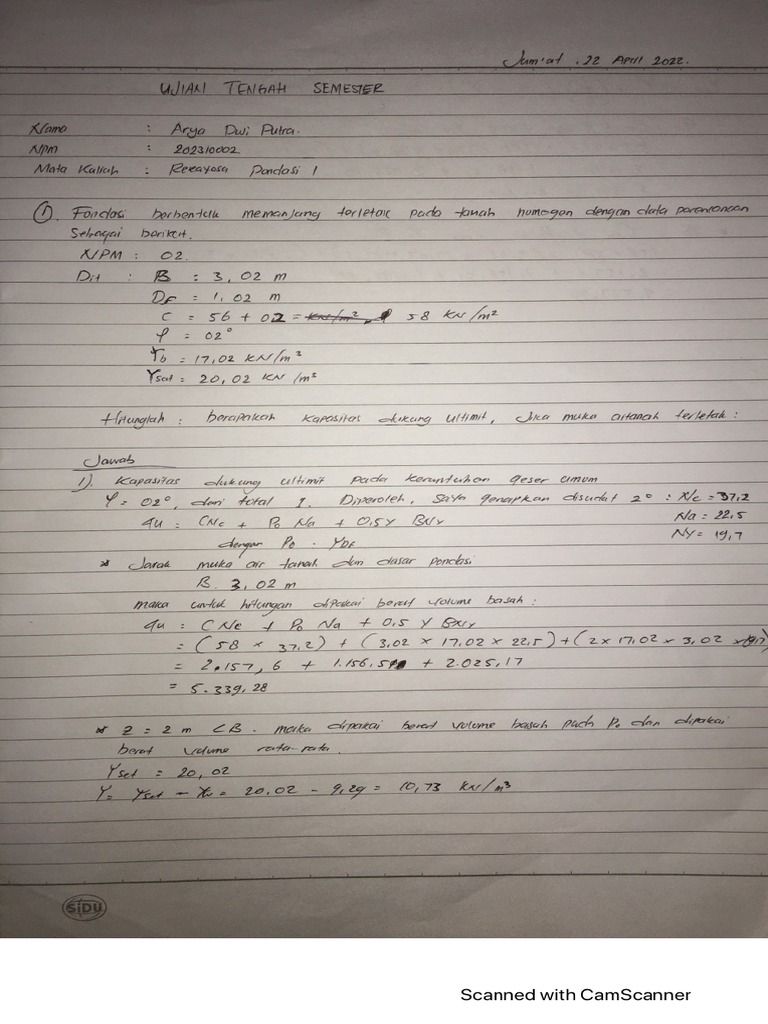 Jum'at, 22 April 2022.
UJIAN TENGAH SEMESTER
Nama : Arya Dwi Putra.
Npm : 202310002
Mata Kuliah : Rekayasa Pondasi 1
1. Fondasi berbentuk memanjang terletak pada tanah homogen dengan data perancangan
Sebagai berikut.
NPM : 02.
Dit : B : 3,02 m
DF = 1,02 m
C = 56 + 02 = 58 KN/m²
φ = 02°
γb = 17,02 KN/m³
γsat = 20,02 KN/m³
Hitunglah : berapakah kapasitas dukung ultimit, Jika muka airtanah terletak :
Jawab
1). Kapasitas dukung ultimit pada keruntuhan geser umum
φ = 02°, dari total 1. Diperoleh, Saya genapkan disudut 2° : Nc = 37,2
qu = CNc + Po Nq + 0,5γ BNγ Nq = 22,5
dengan Po . γDF Nγ = 19,7
* Jarak muka air tanah dan dasar pondasi
B. 3,02 m
maka untuk hitungan dipakai berat volume basah :
qu : C Nc + Po Nq + 0,5 γ BNγ
= (58 x 37,2) + (3,02 x 17,02 x 22,5) + (2 x 17,02 x 3,02 x 19,7)
= 2.157,6 + 1.156,5 + 2.025,17
= 5.339,28
* Z = 2 m < B. maka dipakai berat volume basah pada Po dan dipakai
berat volume rata-rata.
γsat = 20,02
γ = γsat - γw = 20,02 - 9,29 = 10,73 KN/m³
SiDU
Scanned with CamScanner